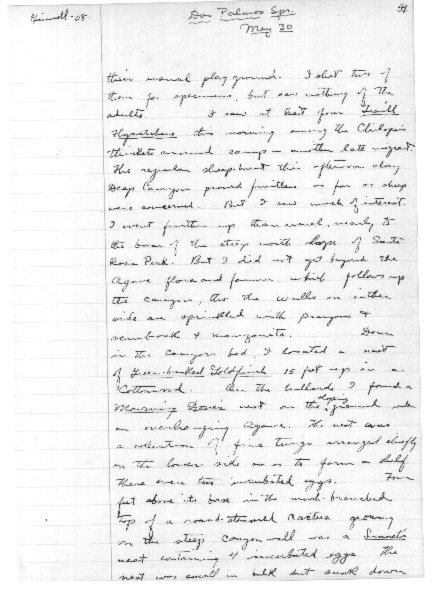 Grinnell - 08.
Dos Palmos Spr.
May 30
their usual play ground. I shot two of
them for specimens, but saw nothing of the
adults I saw at least four Traill
Flycatchers this morning among the Chilopsis
thickets around camp - another late migrant.
The regular sheep hunt this afternoon along
Deep Canyon proved fruitless as far as sheep
were concerned. But I saw much of interest.
I went further up than usual, nearly to
the base of the steep north slope of Santa
Rosa Peak. But I did not get beyond the
Agave flora and fauna, which follows up
the canyon, tho the walls on either
side are sprinkled with
scrub oak & manzanita. Down
in the canyon bed, I located a nest
of Green-backed Goldfinch 15 feet up in a
Cottonwood. On the hillside I found a
Mourning Dove's nest on the sloping ground under
an overhanging Agave. The nest was
a collection of fine twigs arranged chiefly
on the lower side so as to form a shelf
There were two incubated eggs. Four
feet above its base in the much-branched
top of a round-stemmed cactus growing
on the steep canyon wall was a Linnet's
nest containing 4 incubated eggs The
nest was small in bulk but sunk down